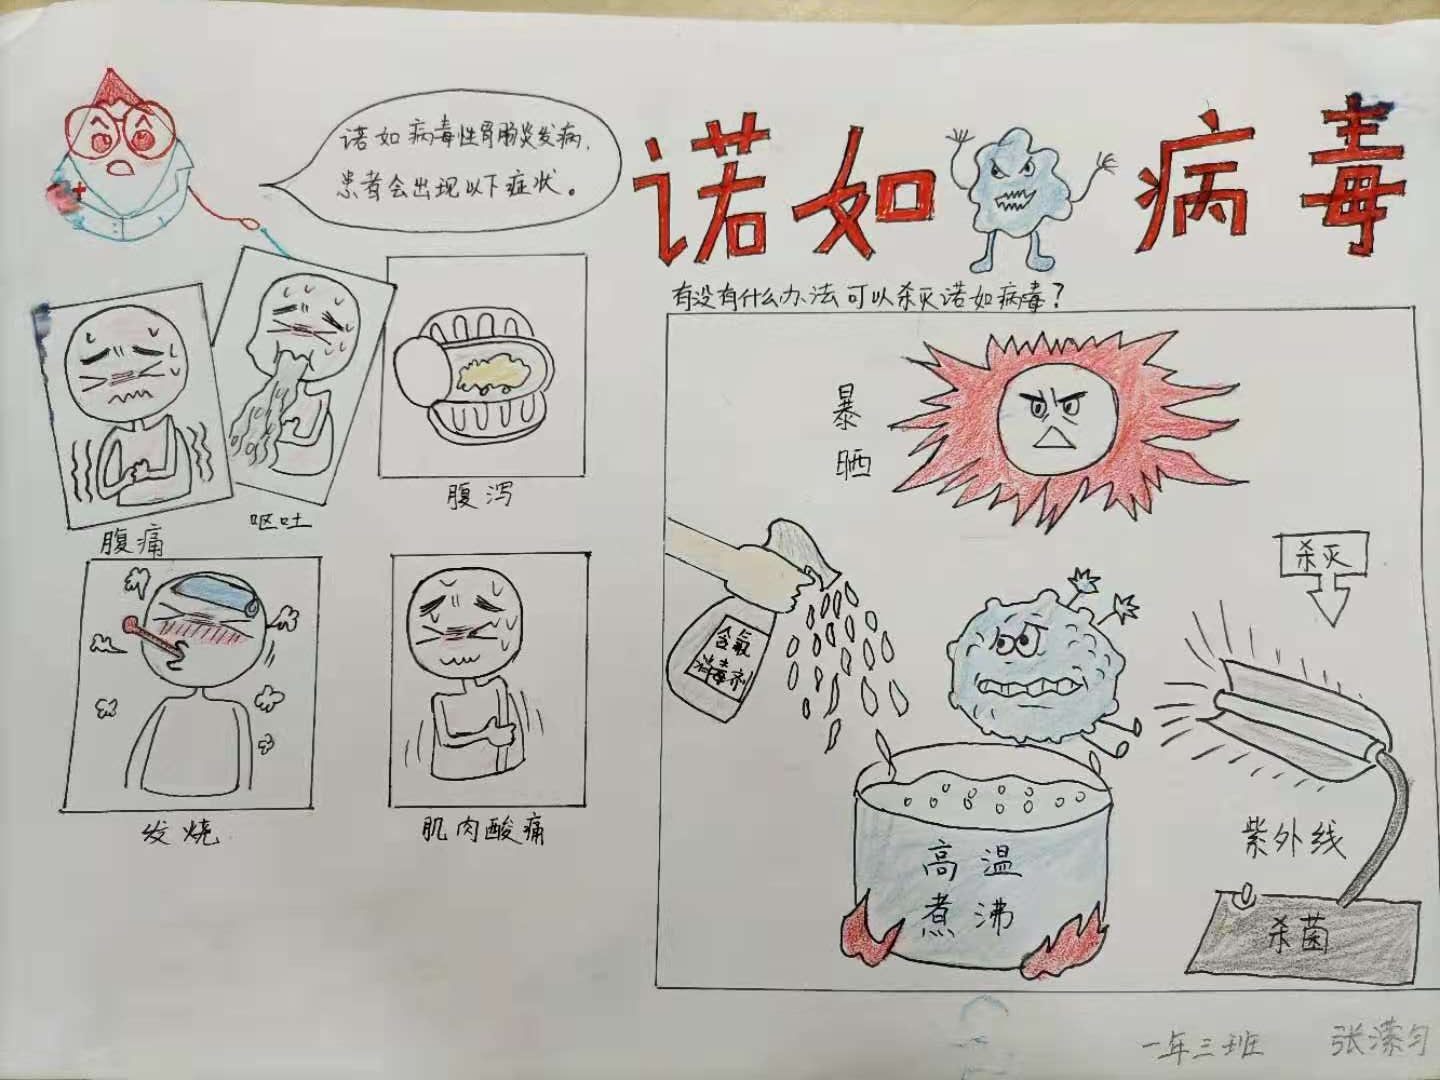 诺如病毒
诺如病毒性胃肠炎发病,
患者会出现以下症状。
腹痛
呕吐
腹泻
发烧
肌肉酸痛
有没有什么办法可以杀灭诺如病毒?
暴
晒
杀灭
含氯
消毒剂
高温
煮沸
紫外线
杀菌
一年三班 张潆匀